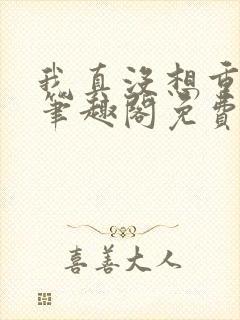 我真没想重
笔趣阁免费
喜善大人